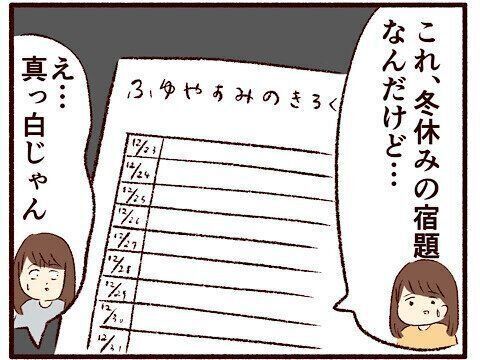 これ、冬休みの宿題
なんだけど…
ふゆやすみのきろく
12/23
12/24
12/25
12/26
12/27
12/28
12/29
12/30
12/31
え…
真っ白じゃん